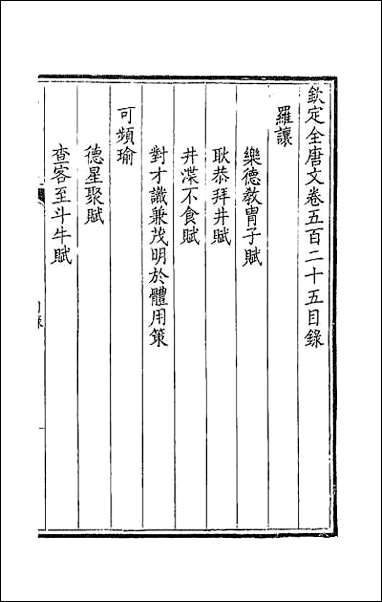 欽定全唐文卷五百二十五目錄
羅讓
樂德敎冑子賦
耿恭拜井賦
井渫不食賦
對才識兼茂明於體用策
可頻瑜
德星聚賦
查客至斗牛賦